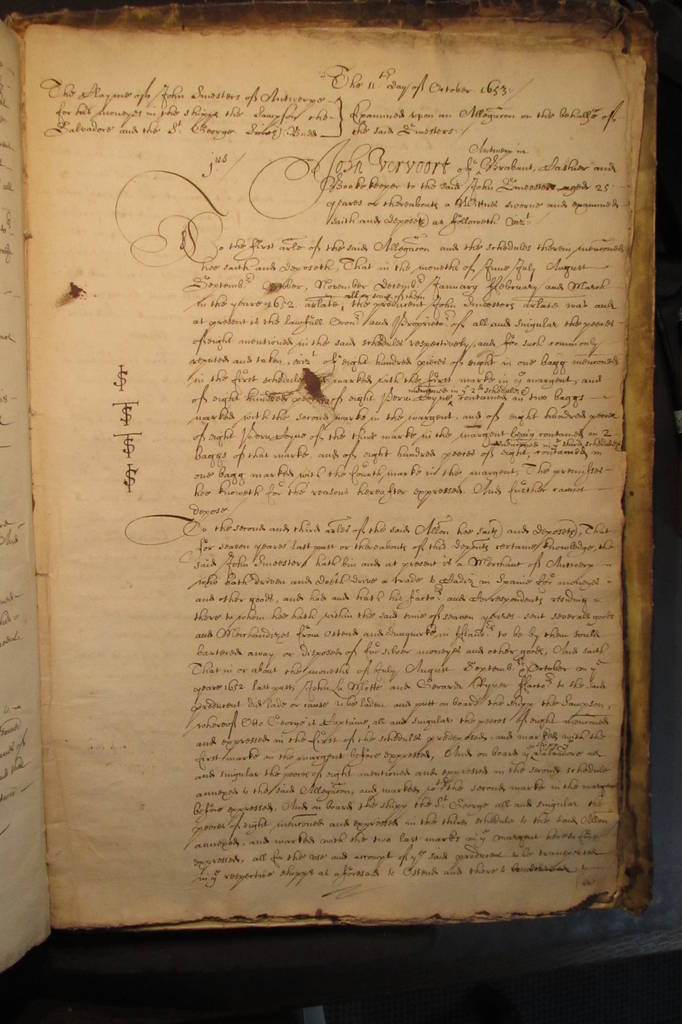 The 11th day of October 1653./
The Clayme of John Smesters of Antwerpe
for his moneyes in the shipps the Sampson the
Salvadore and the St. George
Examined upon an Allegacon on the behalfe of
the said Smesters./
jus
Antwerp in
John Vervoort of Brabant, Cashier and
Bookekeeper to the said John Smesters aged 25
yeares or thereabouts a Witnes sworne and examined
saith and deposeth as followeth vizt.
To the first arle of the said Allegacon and the schedules therein menconed
hee saith and deposeth, That in the moneths of June July August
Septembr October, November Decembr January February and March
in the yeare 1652 arlate, the producent John Smesters arlate was and
at present is the lawfull Owner and Proprietor of all and singular the peeces
of eight mentioned in the said schedules respectively, and for such commonly
reputed and taken, vizt of eight hundred peeces of eight in one bagg menconed
in the first schedule marked with the first marke in ye margent, and
of eight hundred peeces of eight Peru Coyne contained in two baggs
marked with the second marke in the margent, and of eight hundred peeces
of eight Peru Coyne of the third marke in the margent being contained in 2
baggs of that marke, and of eight hundred peeces of eight, contained in
one bagg marked with the fourth marke in the margent, The premisses
hee knoweth for the reasons hereafter expressed. And further cannot
depose.
To the second and third arles of the said Allon hee saith and deposeth, That
for seaven yeares last past or thereabouts of this deponts certaine knowledge, the
said John Smesters hath bin and at present is a Merchant of Antwerp
who hath driven and doeth drive a trade to Cadiz in Spaine for moneyes
and other goods, and had and hath his factors and Correspondents residing
there to whom hee hath within the said time of seaven yeares sent severall goods
and Merchandizes from Ostend and Dunquirke in Flandrs to be by them sould
bartered away or disposed of for silver moneyes and other goods, And saith
That in or about the moneths of July August Septembr October in ye
yeare 1652 last past, John la Motte and Gerard factors to the said
producent did lade or cause to be laden and putt on board the shipp the Sampson,
whereof Otto George is Captaine, all and singular the peeces of eight menconed
and expressed in the first of the schedules, and marked with the
first marke in the margent before expressed, And on board ye Salvadore all
and singular the peeces of eight mentioned and expressed in the second schedule
annexed to the said Allegacon, and marked with the second marke in the margent
before expressed, And on board the shipp the St. George all and singular the
peeces of eight menconed and expressed in the third schedule to the said Allon
annexed, and marked with the two last marks in ye margent heretofore
expressed, all for the use and account of ye said producent to be transported
in ye respective shipps as aforesaid to Ostend and there to